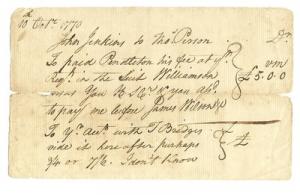 10 Octr. 1770
John Jenkins to Thos. Pierson Dr.
To paid Pendleton his fee at yr.
Reqt. in the Suit Williamson
vs You & so yr. you
to pay me before James Wilson
£5.0.0
To yr. acct. with T Bridges
vide is here after perhaps
or 7/6. I don't know
£